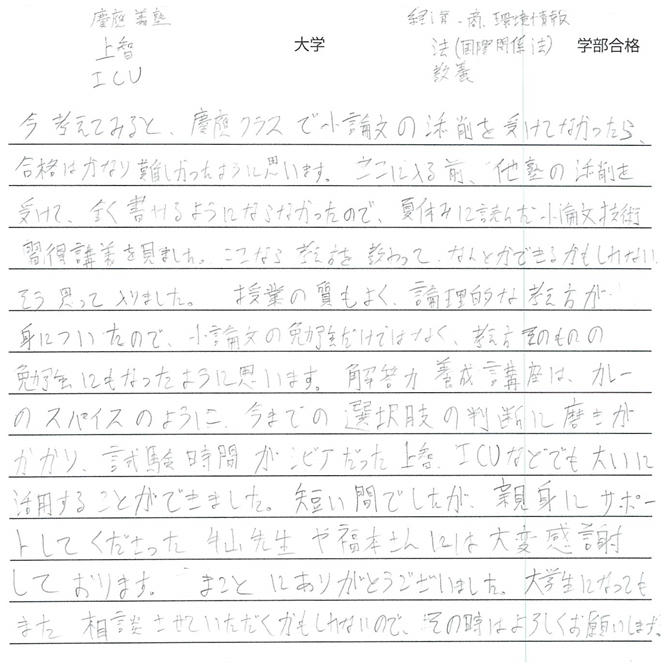 慶應義塾 経済・商、環境情報
上智 大学 法(国際関係法) 学部合格
ICU 教養
今考えてみると、慶應クラスで小論文の添削を受けてなかったら、
合格はかなり難しかったように思います。ここに入る前、他塾の添削を
受けて、全く書けるようにならなかったので、夏休みに読んだ小論文技術
習得講義を見ました。ここなら考え方を教わって、なんとかできるかもしれない
そう思って入りました。 授業の質もよく、論理的な考え方が
身についたので、小論文の勉強だけではなく、考え方そのものの
勉強にもなったように思います。解答力養成講座は、カレー
のスパイスのように、今までの選択肢の判断に磨きが
かかり、試験時間がシビアだった上智、ICUなどでも大いに
活用することができました。短い間でしたが、親身にサポー
トしてくださった 牛山先生や福本さんには大変感謝
しております。 まことにありがとうございました。大学生になっても
また相談させていただくかもしれないので、その時はよろしくお願いします。